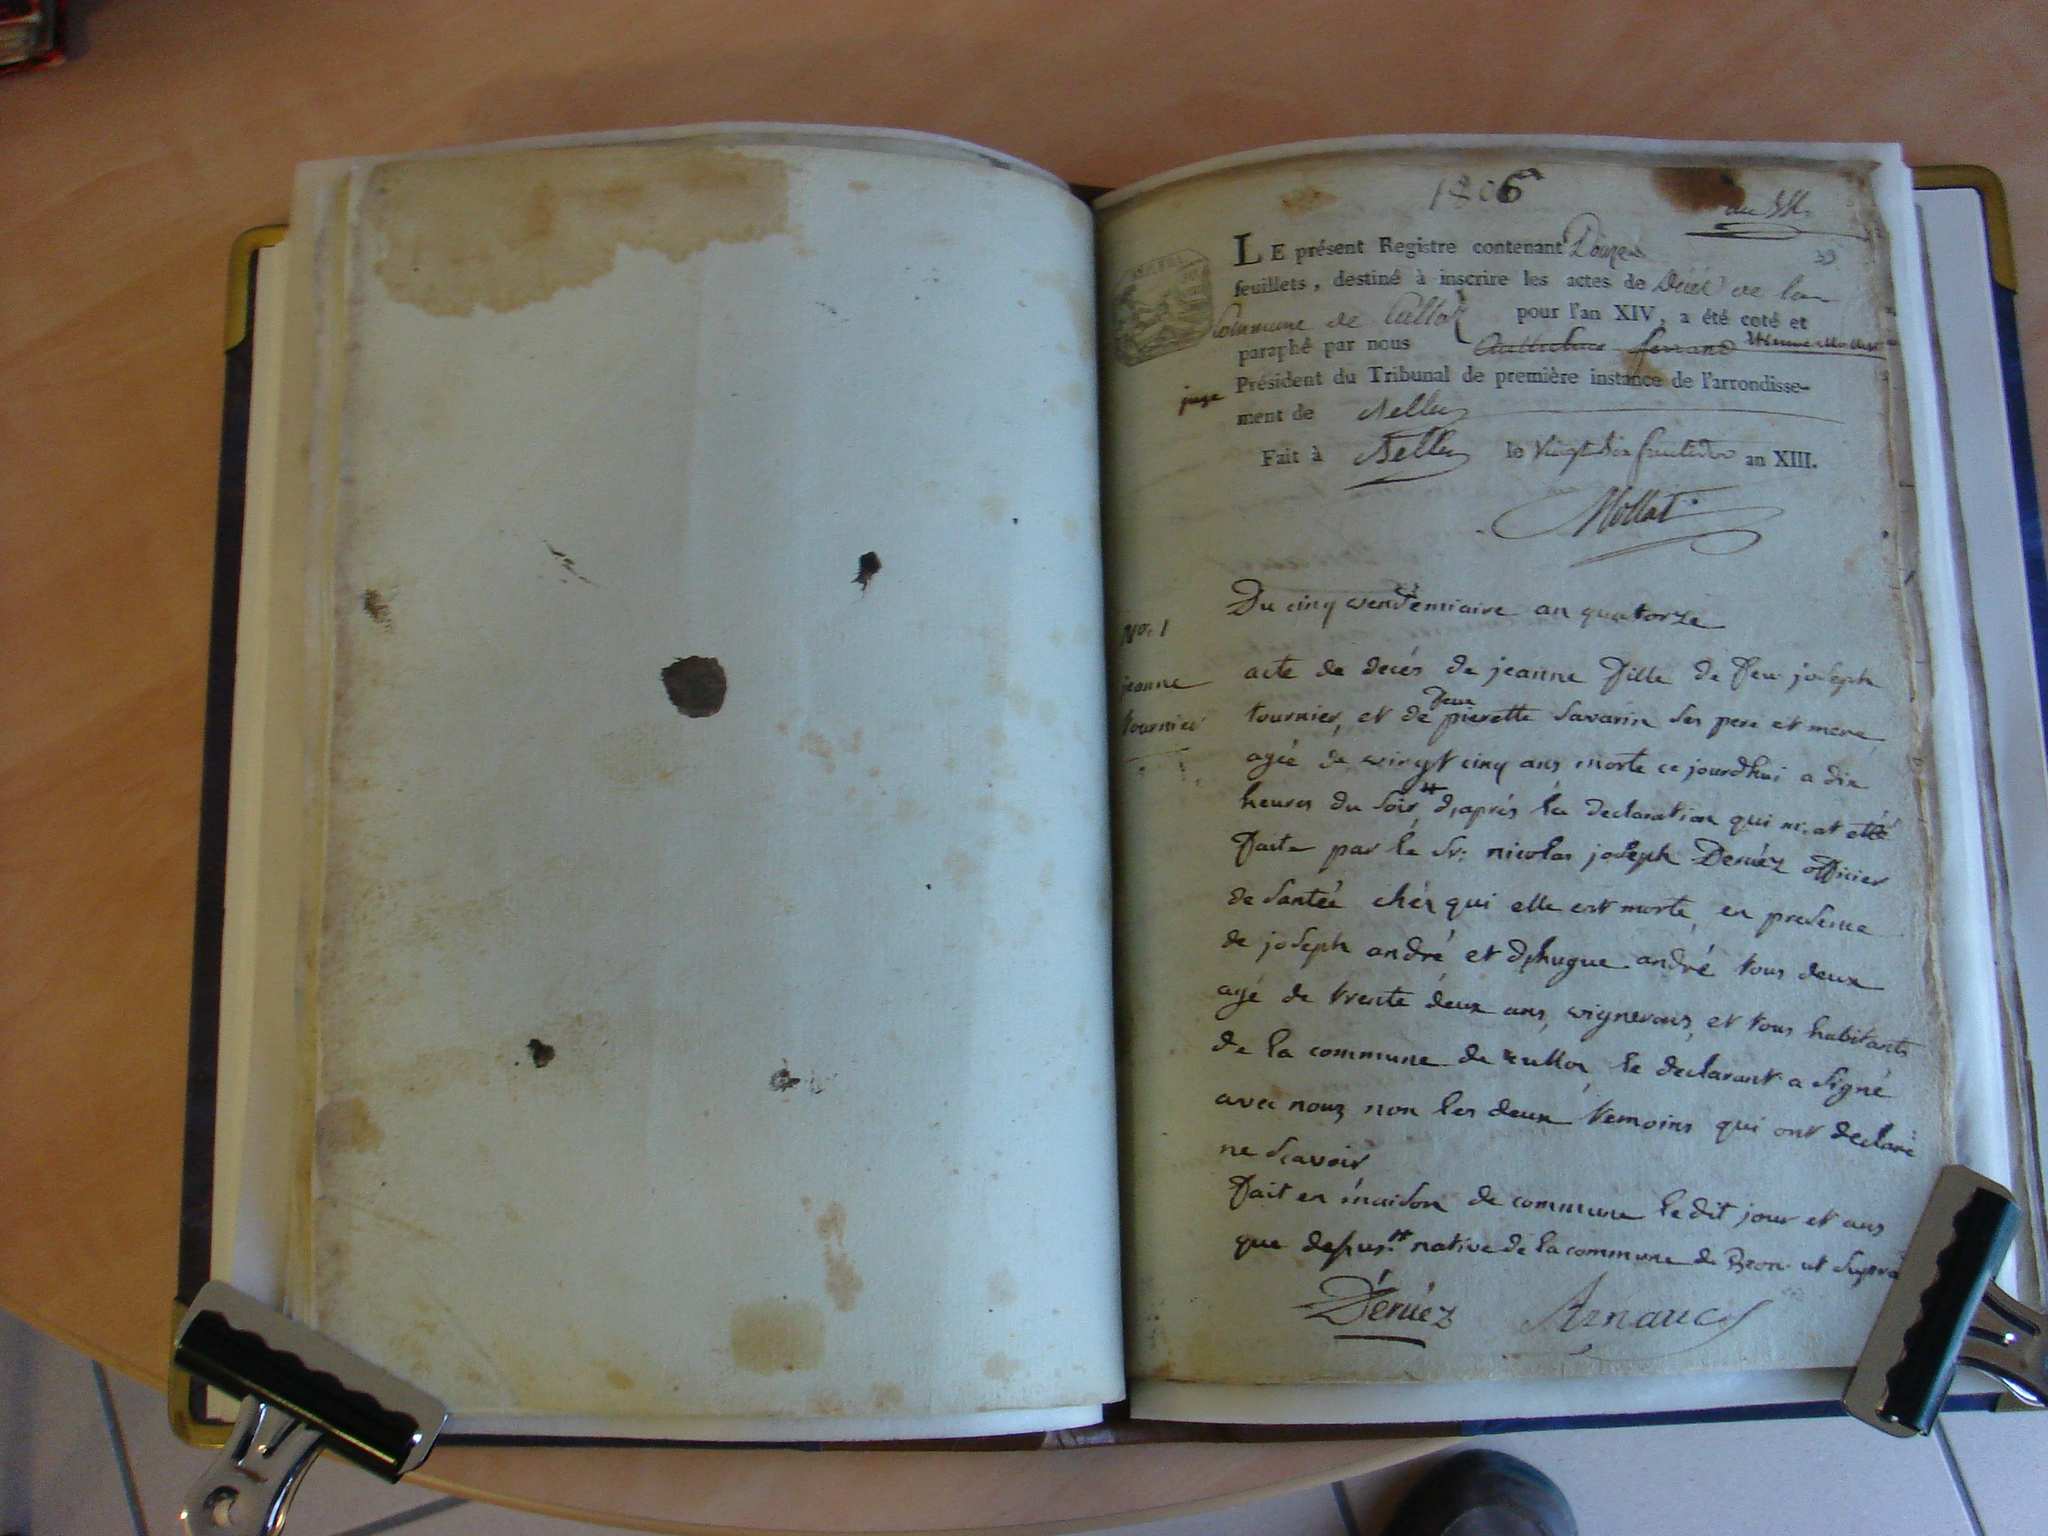 1806
LE présent Registre contenant Douze
feuillets, destiné à inscrire les actes de Décès de la
Commune de Culloz pour l'an XIV, a été coté et
paraphé par nous Anthelme ferrand
juge
Président du Tribunal de première instance de l'arrondisse-
ment de Belley
Fait à Belley le vingt dix fructidor an XIII.
Mollat
Du cinq vendémiaire an quatorze
No. 1
jeanne
tournier
acte de decés de jeanne fille de feu joseph
tournier, et de feue pierette savarin ses pere et mere
agée de vingt cinq ans morte ce jourdhui a dix
heures du soir # d'aprés la declaration qui m'at etté
faite par le Sr. nicolas joseph Deruéz officier
de santée chéz qui elle est morte, en presence
de joseph andré et d'hugue andré tous deux
agé de trente deux ans, vignerons, et tous habitants
de la commune de culloz, le declarant a signé
avec nouz non les deux temoins qui ont declaré
ne scavoir
fait en maison de commune le dit jour et ans
que desus. # native de la commune de Bron ut supra
Déruéz Arnaud